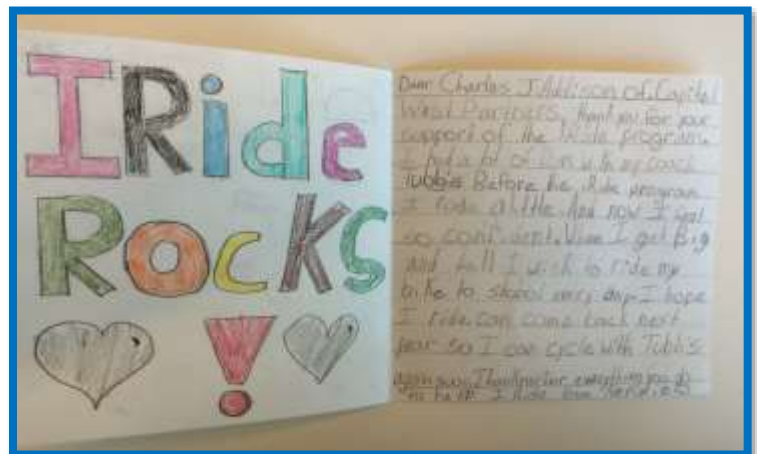 IRide
ROCKS
!
Dear Charles J Addison of Capital
West Partners, thank you for your
support of the iRide program.
I had a lot of fun with my coach
Before the iRide program
I rode a little. And now I feel
so confident. When I get Big
and tall I wish to ride my
bike to school every day. I hope
I ride can come back next
year so I can cycle with Tubbis
again soon. Thank you for everything you do
to help I Ride